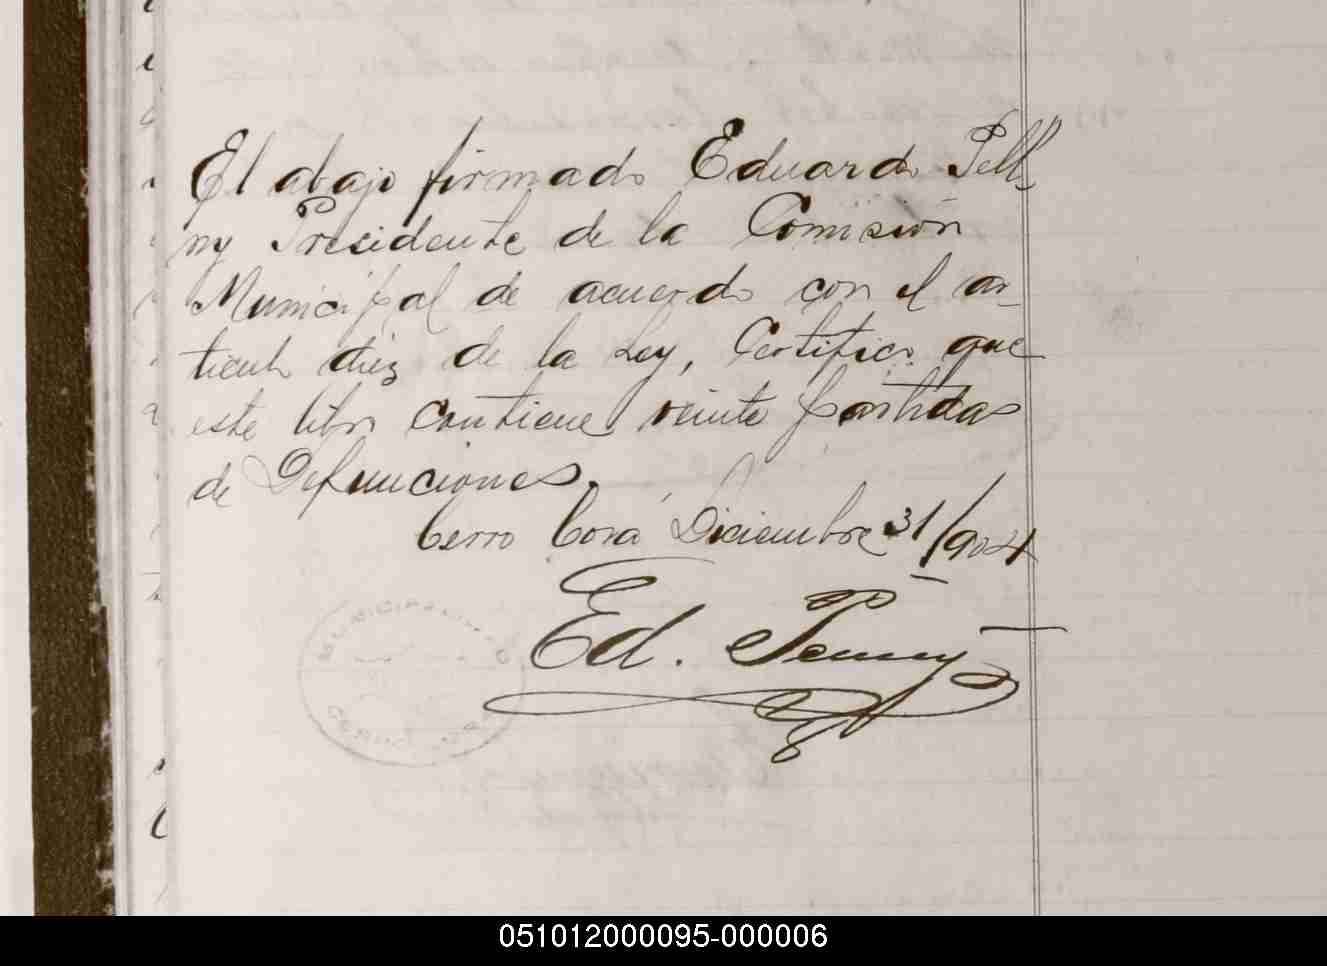 El abajo firmado Eduardo Pell-
ny Presidente de la Comision
Municipal de acuerdo con el ar-
ticulo diez de la Ley, Certifico que
este libro contiene veinte partidas
de Defunciones.
Cerro Corá Diciembre 31/904
Ed. Penny
MUNICIPALIDAD
051012000095-000006